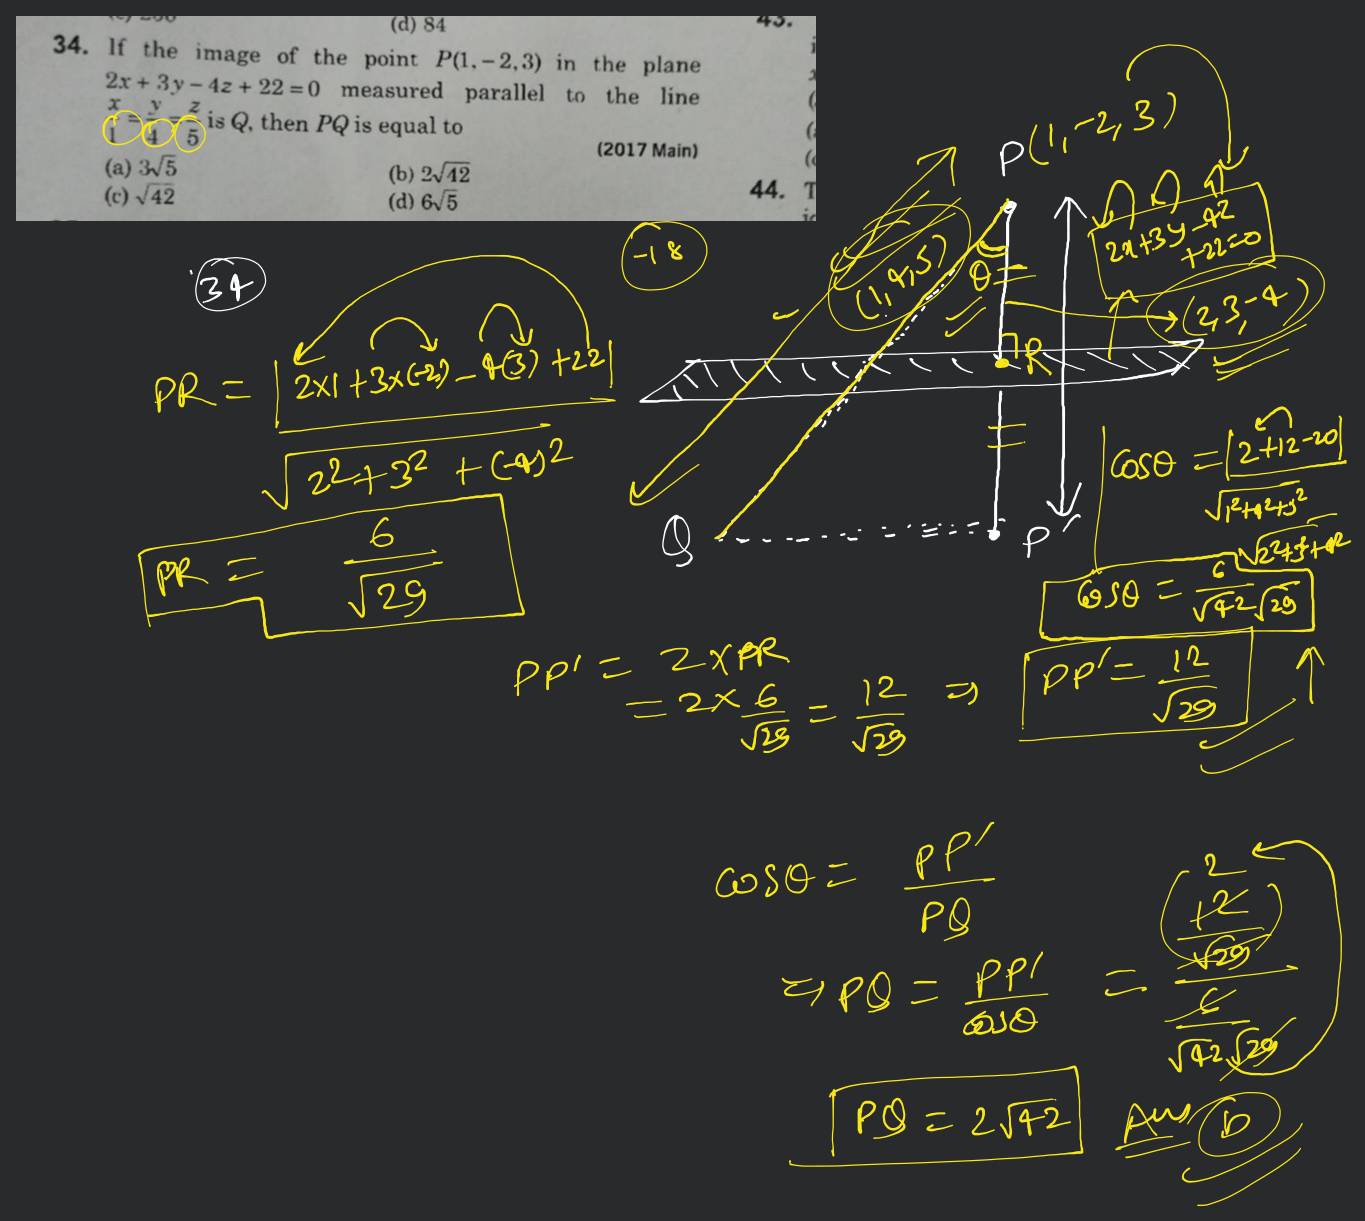 (d) 84
43.
34. If the image of the point P(1, – 2, 3) in the plane
2x + 3y – 4z + 22 = 0 measured parallel to the line
x/1 = y/4 = z/5 is Q, then PQ is equal to
(2017 Main)
(a) 3√5
(b) 2√42
(c) √42
(d) 6√5
44. T
34
-18
P(1, -2, 3)
2x+3y-4z
+22=0
(1, 4, 5)
θ
(2, 3, -4)
R
Q
P'
PR = |2x1 + 3x(-2) - 4(3) + 22|
√2² + 3² + (-4)²
PR = 6/√29
cosθ = |2+12-20|
√1²+4²+5²
√2²+3²+4²
cosθ = 6/√42√29
PP' = 2 x PR
= 2 x 6/√29 = 12/√29 ⇒ PP' = 12/√29
cosθ = PP'/PQ
⇒ PQ = PP'/cosθ = (12/√29)/(6/√42√29)
2
PQ = 2√42 Ans D